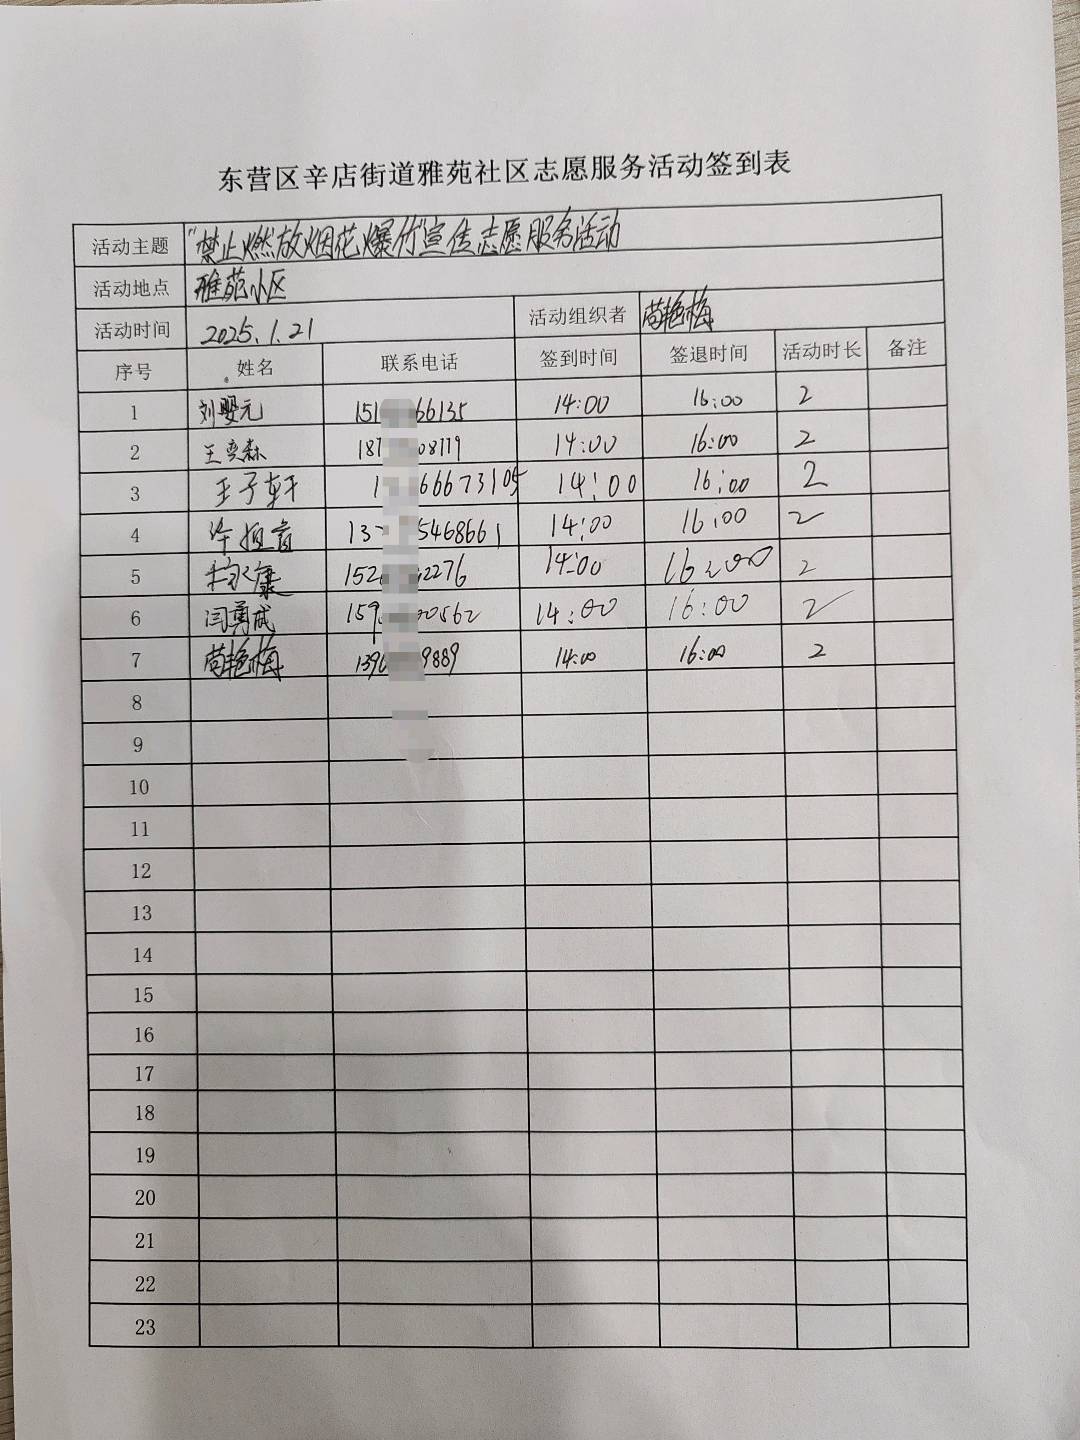 东营区辛店街道雅苑社区志愿服务活动签到表
活动主题 "禁止燃放烟花爆竹"宣传志愿服务活动
活动地点 雅苑小区
活动时间 2025.1.21 活动组织者 苟艳梅
序号 姓名 联系电话 签到时间 签退时间 活动时长 备注
1 刘婴元 151 66135 14:00 16:00 2
2 王奕森 187 08119 14:00 16:00 2
3 王子轩 1 66673105 14:00 16:00 2
4 13 5468661 14:00 16:00 2
5 152 2276 14:00 16:00 2
6 闫勇成 159 00562 14:00 16:00 2
7 苟艳梅 139 9889 14:00 16:00 2
8
9
10
11
12
13
14
15
16
17
18
19
20
21
22
23